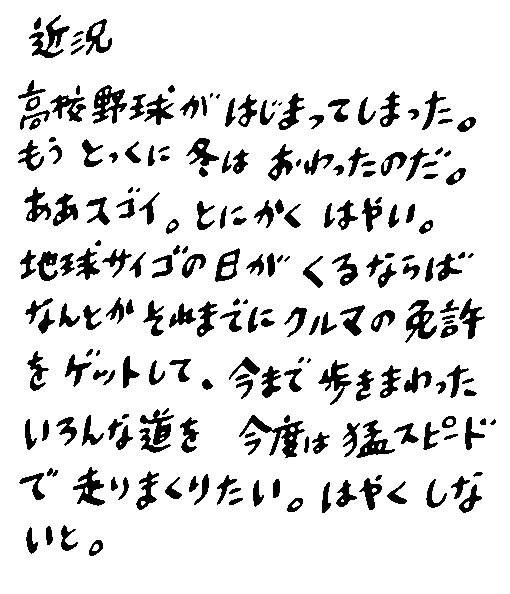 近況
高校野球がはじまってしまった。
もうとっくに冬はおわったのだ。
ああスゴイ。とにかくはやい。
地球サイゴの日がくるならば
なんとかそれまでにクルマの免許
をゲットして、今まで歩きまわった
いろんな道を 今度は猛スピード
で走りまくりたい。はやくしな
いと。